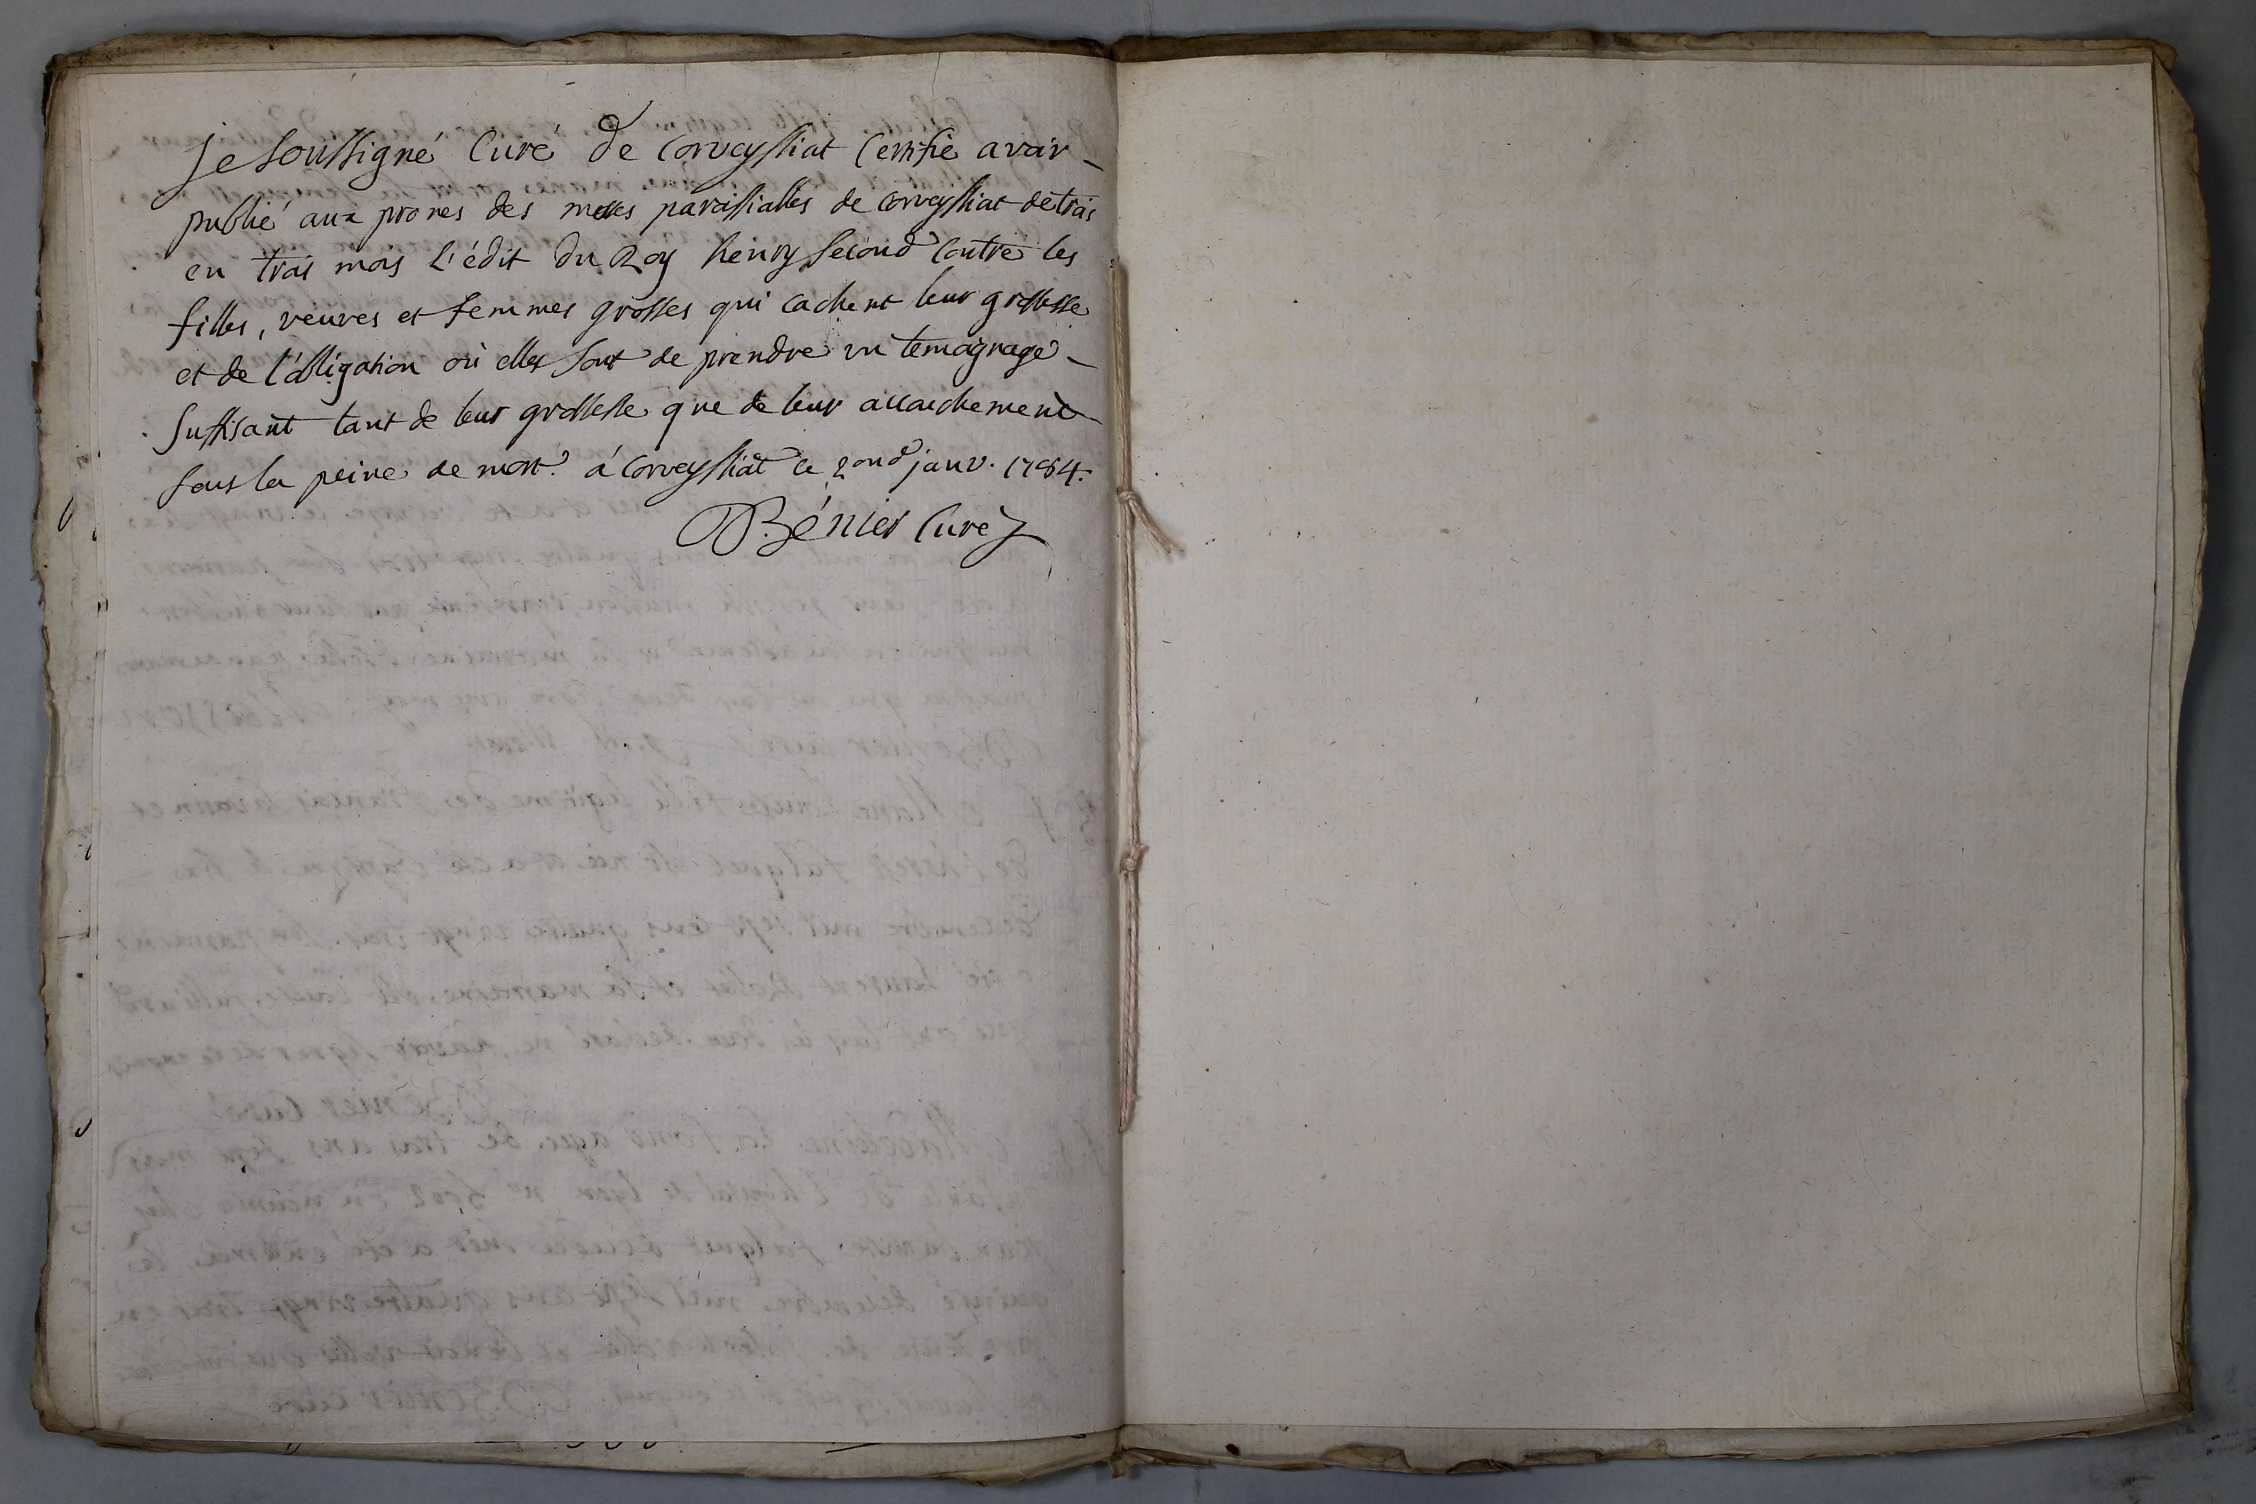 je soussigné Curé de Corveyssiat Certifie avoir
publié aux prones des messes paroissialles de corveyssiat de trois
en trois mois l'édit du Roy henry second contre les
filles, veuves et femmes grosses qui cachent leur grossesse
et de l'obligation où elles sont de prendre un temoignage
suffisant tant de leur grossesse que de leur accouchement
sous la peine de mort. á Corveyssiat ce 2ond janv. 1784.
Bénier Curé